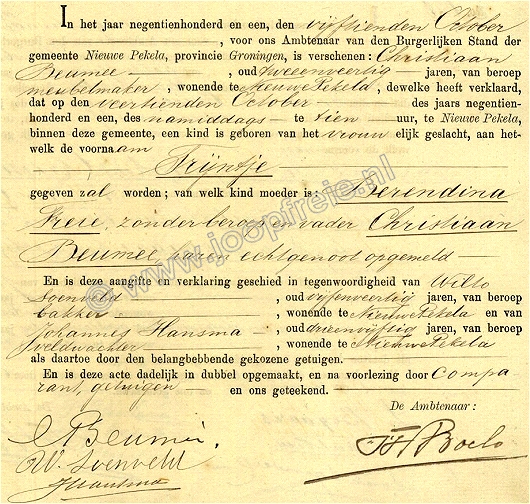 In het jaar negentienhonderd en een, den vijftienden October
, voor ons Ambtenaar van den Burgerlijken Stand der
gemeente Nieuwe Pekela, provincie Groningen, is verschenen: Christiaan
Beumee, oud tweeenveertig jaren, van beroep
meubelmaker, wonende te Nieuwe Pekela, dewelke heeft verklaard,
dat op den veertienden October des jaars negentien-
honderd en een, des namiddags te tien uur, te Nieuwe Pekela,
binnen deze gemeente, een kind is geboren van het vrouwelijk geslacht, aan het-
welk de voornaam
Trijntje
gegeven zal worden; van welk kind moeder is: Berendina
Freie, zonder beroep en vader Christiaan
Beumee, haren echtgenoot opgemeld
En is deze aangifte en verklaring geschied in tegenwoordigheid van Wilto
Soenveld, oud vijfenveertig jaren, van beroep
bakker, wonende te Nieuwe Pekela en van
Johannes Hansma, oud drieenvijftig jaren, van beroep
veldwachter, wonende te Nieuwe Pekela
als daartoe door den belanghebbende gekozene getuigen.
En is deze acte dadelijk in dubbel opgemaakt, en na voorlezing door Compa
rant, getuigen en ons geteekend.
De Ambtenaar:
C Beumee.
W. Soenveld
J Hansma
© www.joopfreie.nl